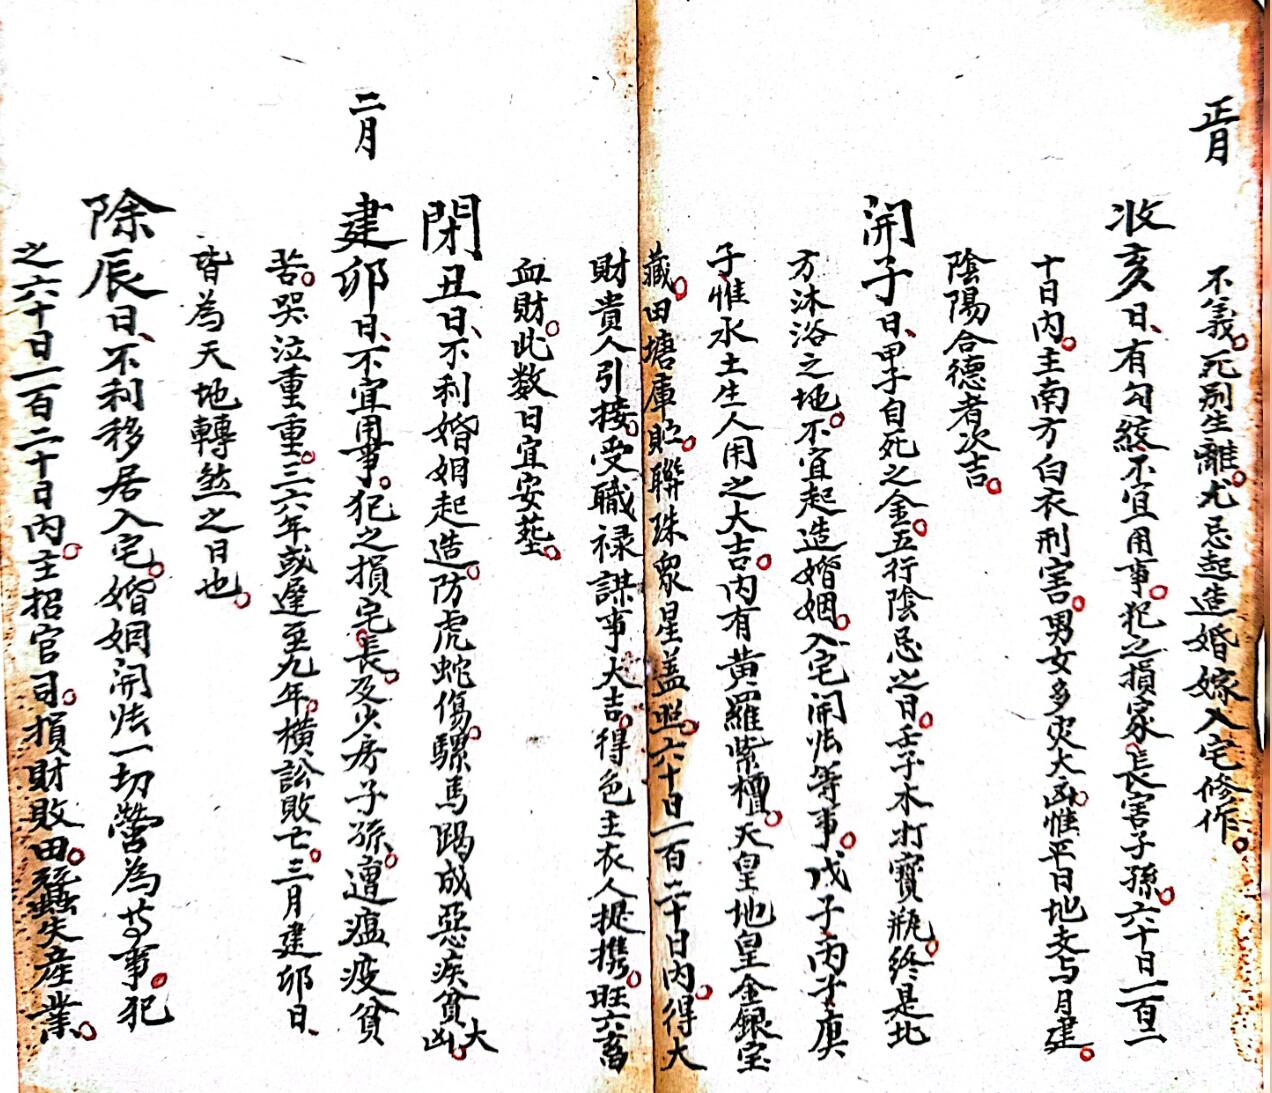 正月
不義。死别生離。尤忌起造婚嫁入宅修作。
收亥日、有勾絞不宜用事。犯之損家長害子孫。六十日一百二
十日内。主南方白衣刑害。男女多灾大凶。惟平日地支与月建。
陰陽合德者次吉。
開子日、甲子自死之金。五行陰忌之日。壬子木打寶瓶。終是北
方沐浴之地。不宜起造婚姻。入宅開張等事。戊子丙子庚
子惟水土生人用之大吉。内有黄羅紫檀。天皇地皇金銀宝
藏。田塘庫貯。聯珠衆星盖照。六十日一百二十日内。得大
財貴人引接。受職禄謀事大吉。得色主衣人提携。旺六畜
血財。此数日宜安葬。
閉丑日、不利婚姻起造。防虎蛇傷。騾馬踢成惡疾貧大凶。
二月
建卯日、不宜用事。犯之損宅長。及少房子孫。遭瘟疫貧
苦。哭泣重重。三六年或遲至九年。横訟敗亡。三月建卯日、
皆為天地轉煞之日也。
除辰日、不利移居入宅。婚姻開張一切營為等事。犯
之六十日一百二十日内。主招官司。損財敗田。蚕失產業。